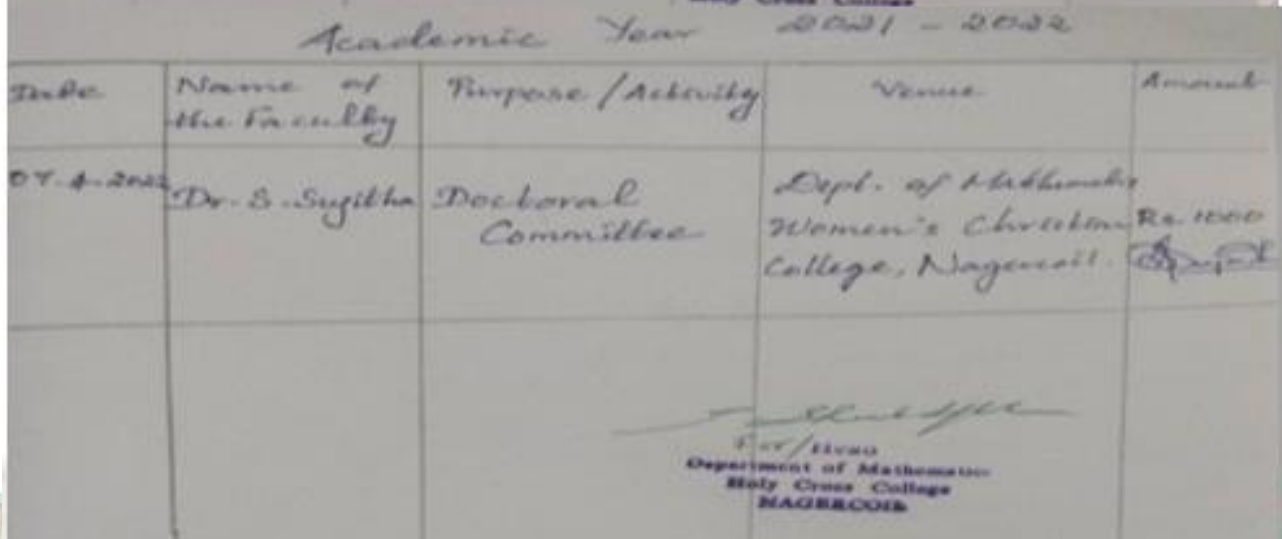 Holy Cross College
Academic Year 2021 - 2022
Date
Name of
the Faculty
Purpose / Activity
Venue
Amount
07.4.2022
Dr. S. Sujitha
Doctoral
Committee
Dept. of Mathematics
Women's Christian
College, Nagercoil.
Rs. 1000
For/HEAD
Department of Mathematics
Holy Cross College
NAGERCOIL